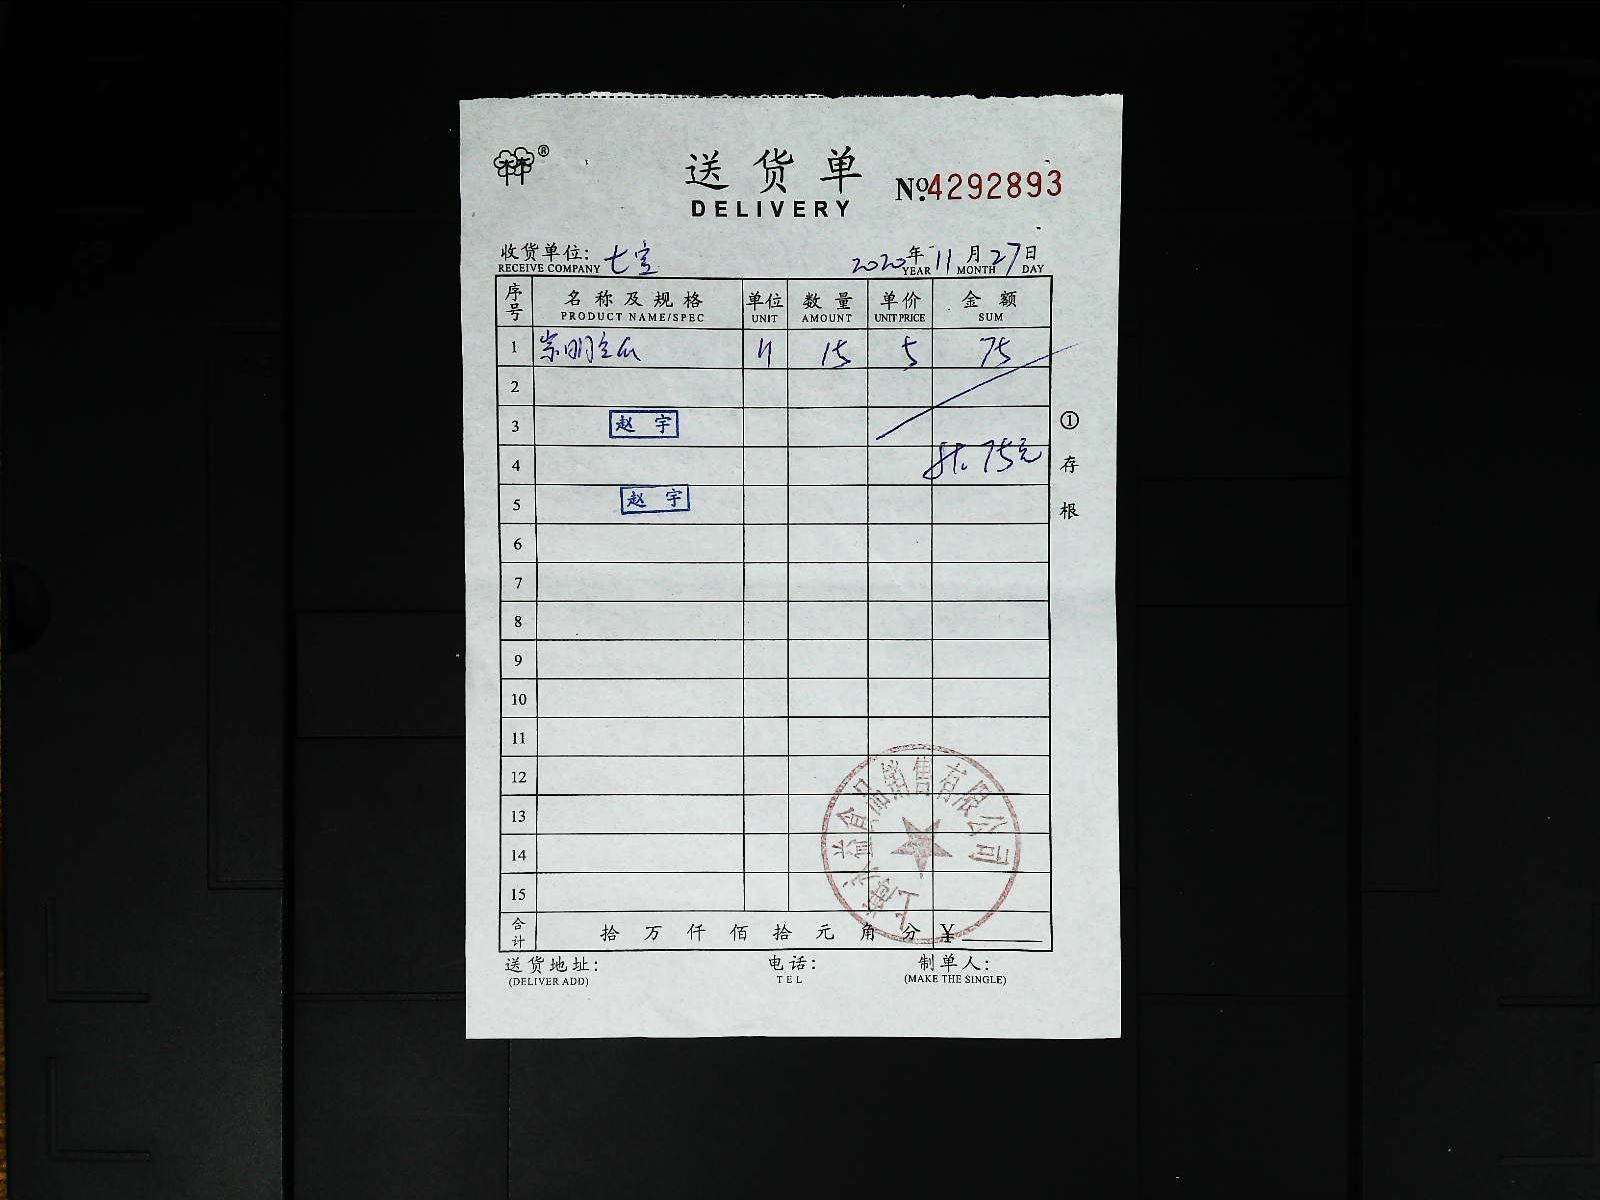 ®
送货单
DELIVERY
№.4292893
收货单位: 七宝 2020年11月27日
RECEIVE COMPANY YEAR MONTH DAY
序号 名称及规格 单位 数量 单价 金额
PRODUCT NAME/SPEC UNIT AMOUNT UNIT PRICE SUM
1 崇明 15 5 75
2
3 赵宇
4 75元
5 赵宇
6
7
8
9
10
11
12
13
14
15
① 存根
上海永益食品销售有限公司
合计 拾 万 仟 佰 拾 元 角 分 ¥
送货地址: 电话: 制单人:
(DELIVER ADD) TEL (MAKE THE SINGLE)